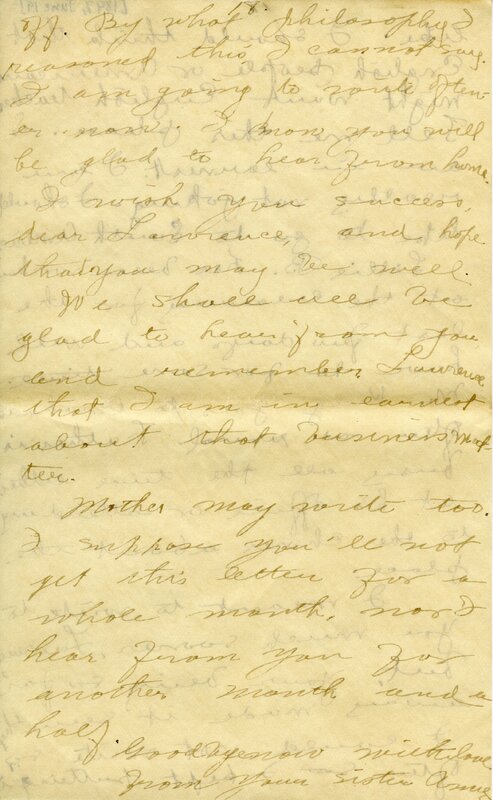 18.
off. By what philosophy I
reasoned this I cannot say.
I am going to write often-
er now. I know you will
be glad to hear from home.
I wish you success,
dear Lawrence, and hope
that you may be well.
We shall all be
glad to hear from you
and remember, Lawrence
that I am in earnest
about that business mat-
ter.
Mother may write too.
I suppose you'll not
get this letter for a
whole month, nor I
hear from you for
another month and a
half.
Goodbye now with love
from your sister Annie